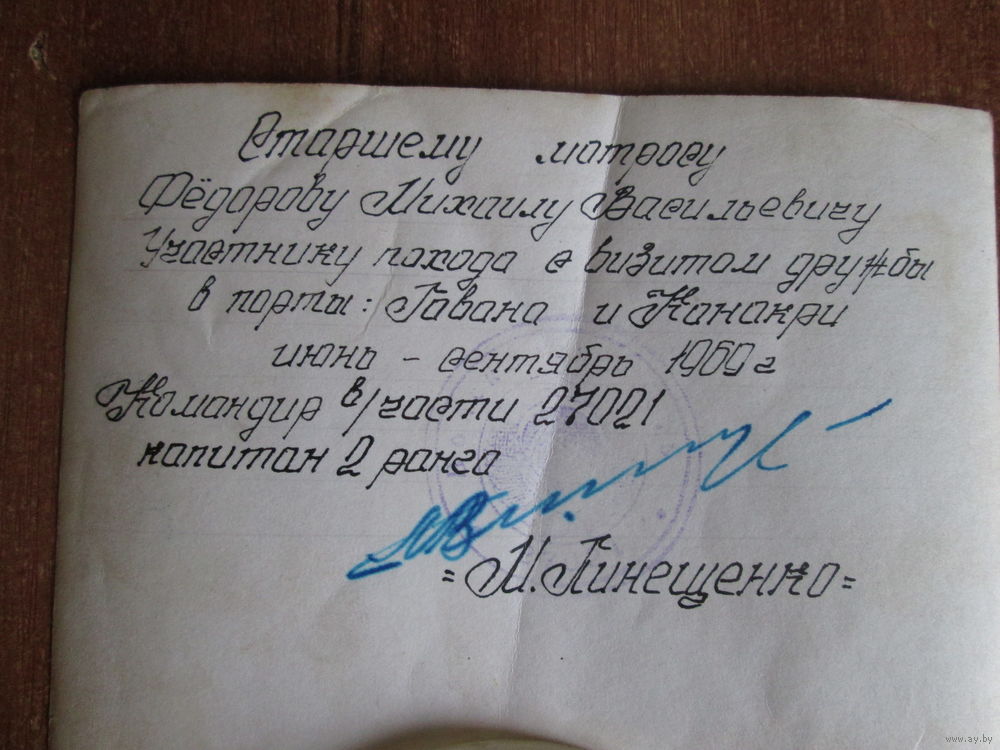 Старшему матросу
Фёдорову Михаилу Васильевичу
Участнику похода с визитом дружбы
в порты: Гавана и Конакри
июнь – сентябрь 1969 г
Командир в/части 27021
капитан 2 ранга
=М. Линещенко=
www.ay.by